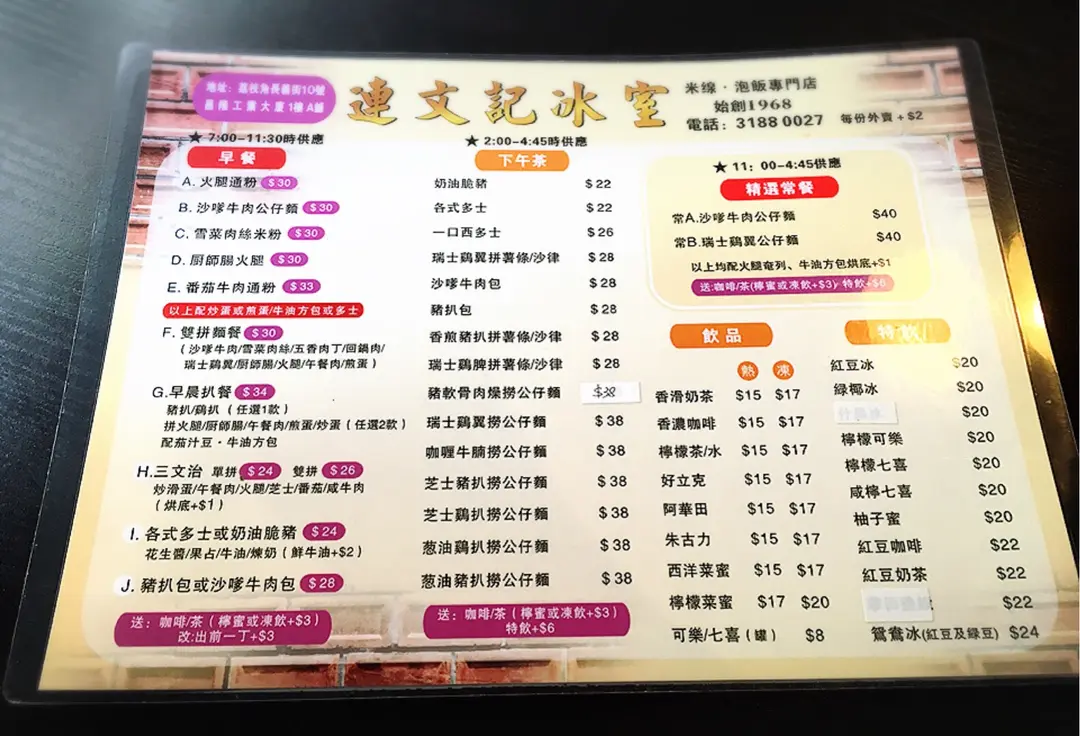 地址：荔枝角長義街10號
昌隆工業大廈1樓A舖
連文記冰室
米線·泡飯專門店
始創1968
電話：3188 0027
每份外賣+$2
★ 7:00-11:30時供應
早餐
A. 火腿通粉 $30
B. 沙嗲牛肉公仔麵 $30
C. 雪菜肉絲米粉 $30
D. 廚師腸火腿 $30
E. 番茄牛肉通粉 $33
以上配炒蛋或煎蛋/牛油方包或多士
F. 雙拼麵餐 $30
(沙嗲牛肉/雪菜肉絲/五香肉丁/回鍋肉/
瑞士鷄翼/厨師腸/火腿/午餐肉/煎蛋)
G. 早晨扒餐 $34
豬扒/鷄扒 (任選1款)
拼火腿/厨師腸/午餐肉/煎蛋/炒蛋 (任選2款)
配茄汁豆·牛油方包
H. 三文治 單拼 $24 雙拼 $26
炒滑蛋/午餐肉/火腿/芝士/番茄/咸牛肉
(烘底+$1)
I. 各式多士或奶油脆豬 $24
花生醬/果占/牛油/煉奶 (鮮牛油+$2)
J. 豬扒包或沙嗲牛肉包 $28
送：咖啡/茶 (檸蜜或凍飲+$3)
改:出前一丁+$3
★ 2:00-4:45時供應
下午茶
奶油脆豬 $22
各式多士 $22
一口西多士 $26
瑞士鷄翼拼薯條/沙律 $28
沙嗲牛肉包 $28
豬扒包 $28
香煎豬扒拼薯條/沙律 $28
瑞士鷄脾拼薯條/沙律 $28
豬軟骨肉燥撈公仔麵 $38
瑞士鷄翼撈公仔麵 $38
咖喱牛腩撈公仔麵 $38
芝士豬扒撈公仔麵 $38
芝士鷄扒撈公仔麵 $38
葱油鷄扒撈公仔麵 $38
葱油豬扒撈公仔麵 $38
送：咖啡/茶 (檸蜜或凍飲+$3)
特飲+$6
★ 11：00-4:45供應
精選常餐
常A.沙嗲牛肉公仔麵 $40
常B.瑞士鷄翼公仔麵 $40
以上均配火腿奄列、牛油方包烘底+$1
送:咖啡/茶(檸蜜或凍飲+$3) 特飲+$6
飲品
熱 凍
香滑奶茶 $15 $17
香濃咖啡 $15 $17
檸檬茶/水 $15 $17
好立克 $15 $17
阿華田 $15 $17
朱古力 $15 $17
西洋菜蜜 $15 $17
檸檬菜蜜 $17 $20
可樂/七喜 (罐) $8
特飲
紅豆冰 $20
綠椰冰 $20
$20
檸檬可樂 $20
檸檬七喜 $20
咸檸七喜 $20
柚子蜜 $20
紅豆咖啡 $22
紅豆奶茶 $22
$22
鴛鴦冰(紅豆及綠豆) $24